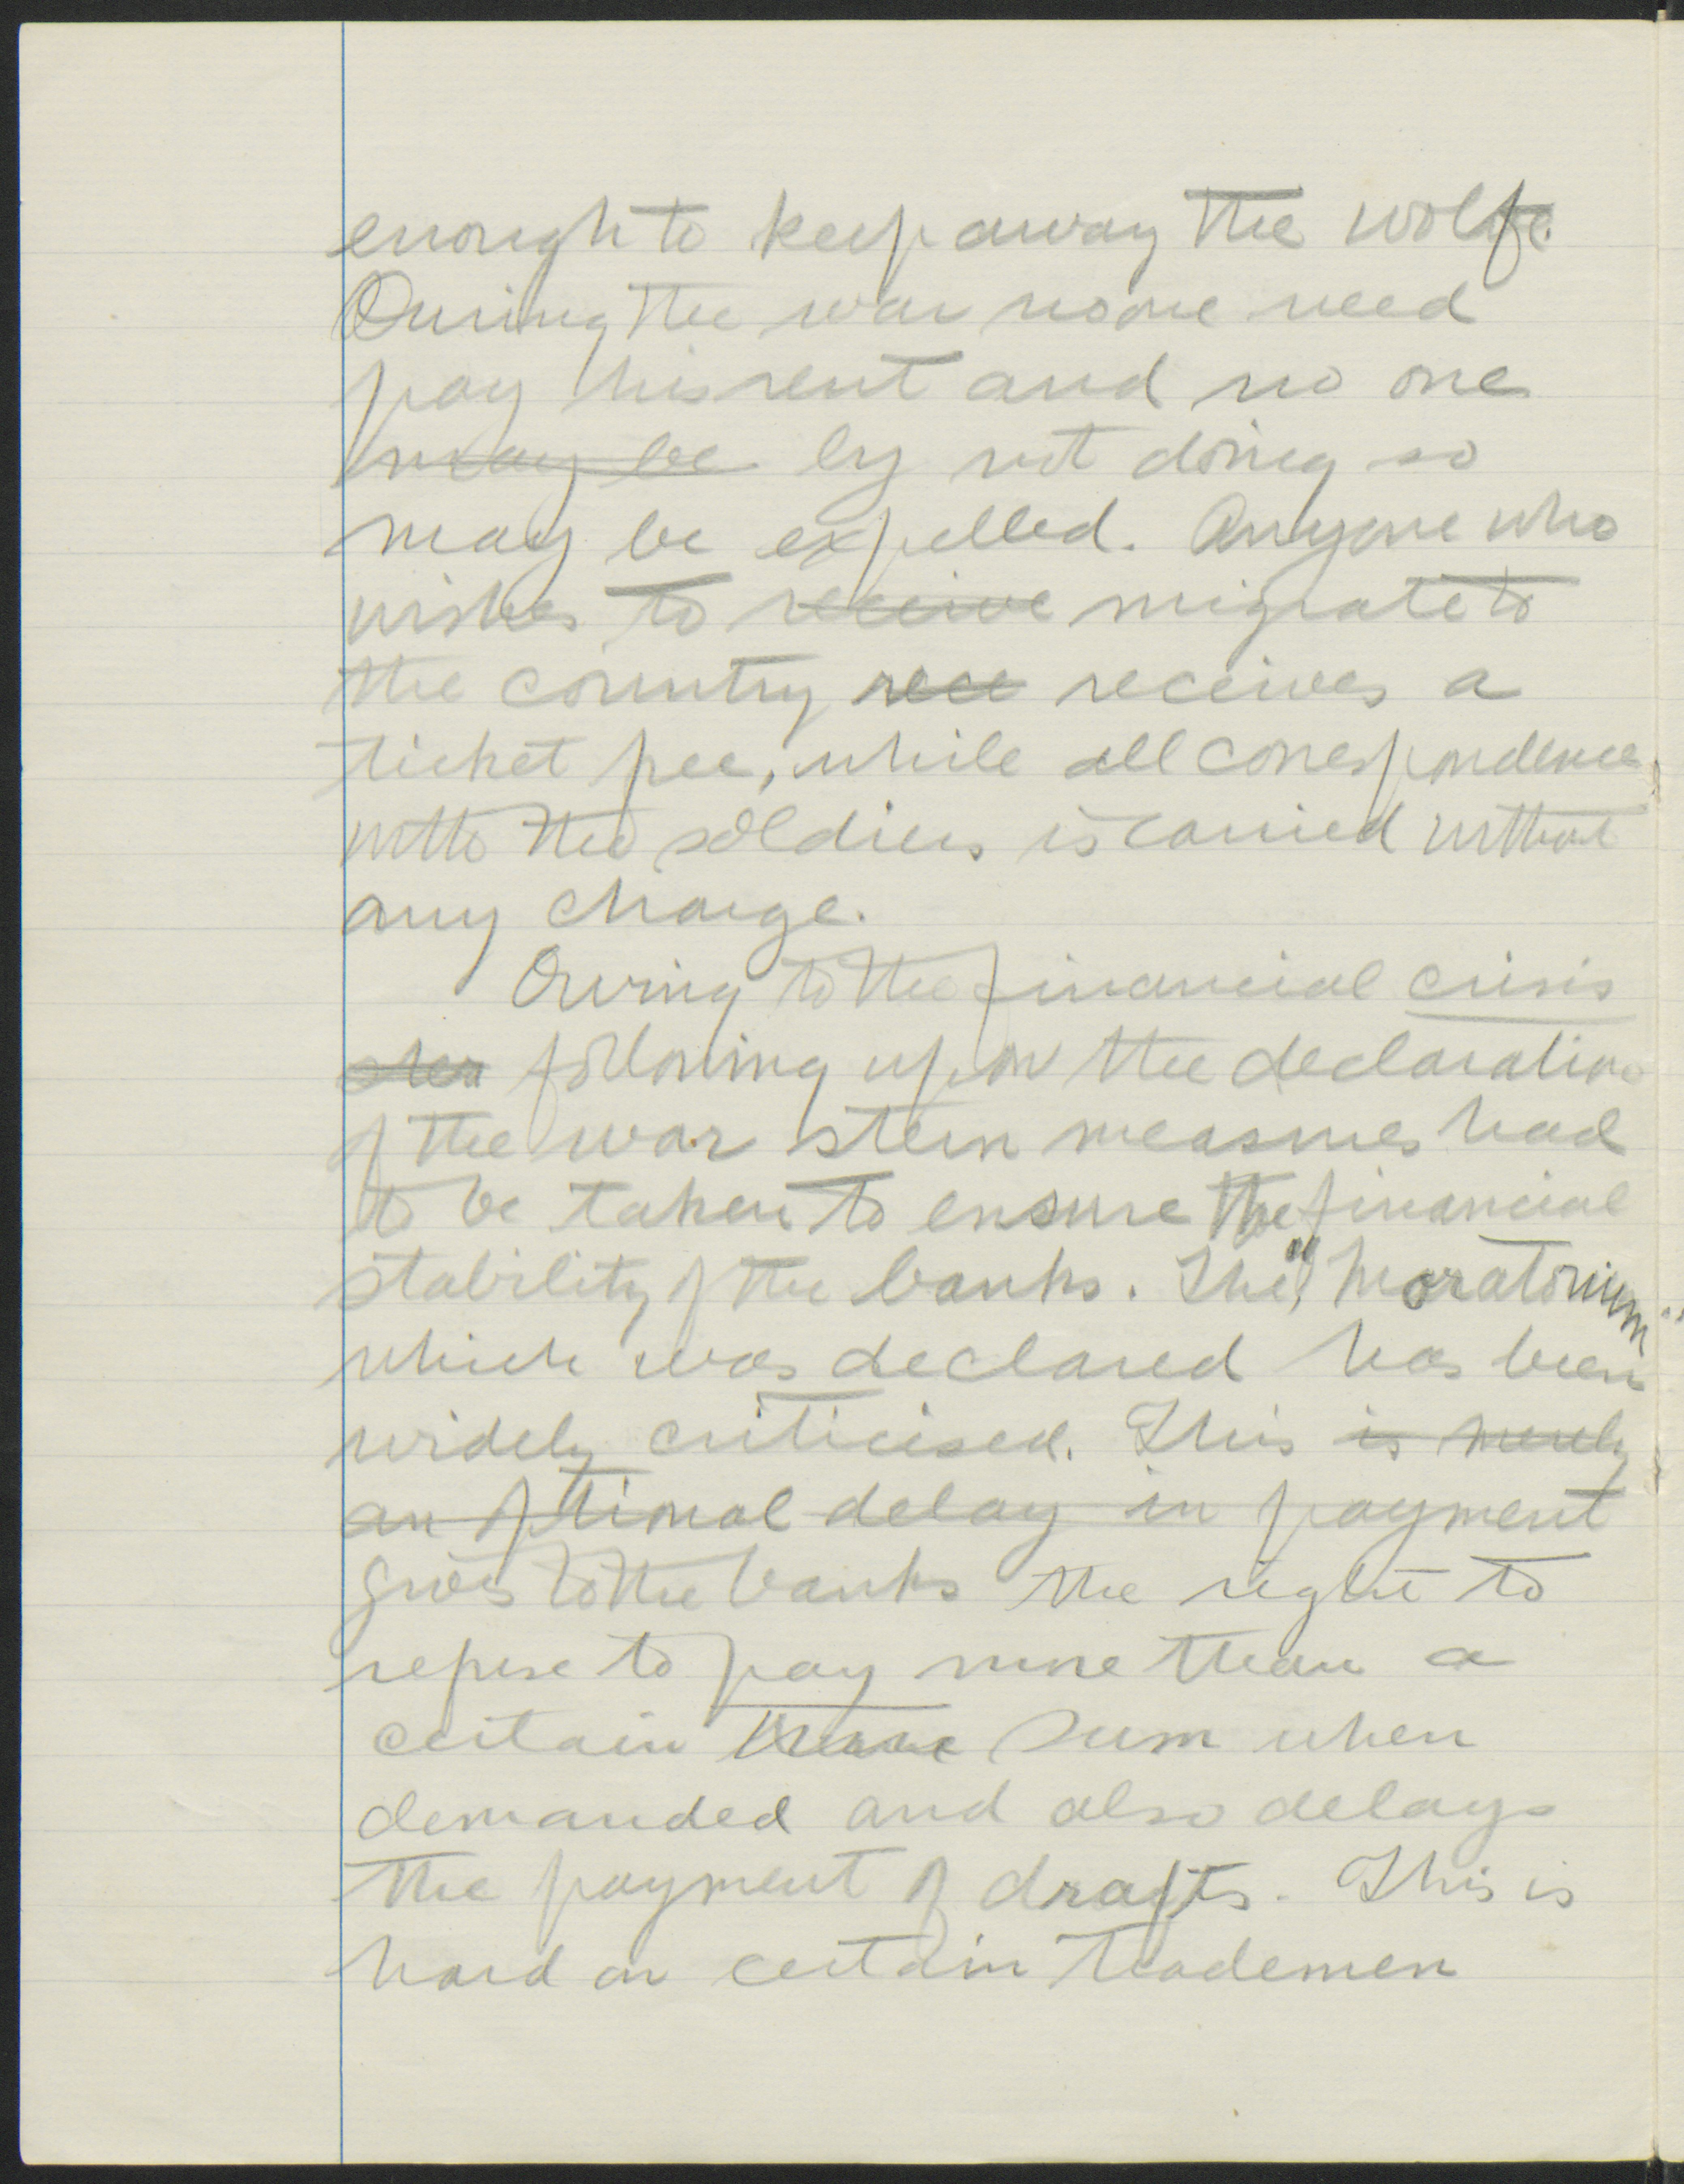 enough to keep away the wolf.
During the war no one need
pay his rent and no one
may be by not doing so
may be expelled. Anyone who
wishes to receive migrate to
the country rece receives a
ticket free, while all correspondence
with the soldiers is carried without
any charge.
Owing to the financial crisis
following upon the declaration
of the war stern measures had
to be taken to ensure the financial
stability of the banks. The "Moratorium"
which was declared has been
widely criticised. This is merely
an optional delay in payment
gives to the banks the right to
refuse to pay more than a
certain sum when
demanded and also delays
the payment of drafts. This is
hard on certain trademen